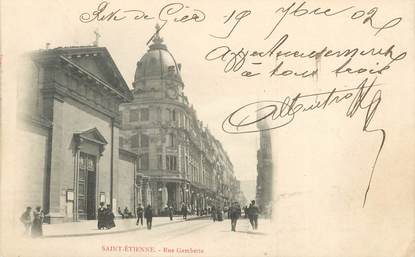 Rive de Gier 19 9bre 02
Affectueusement
à tous trois
SAINT-ÉTIENNE. - Rue Gambetta